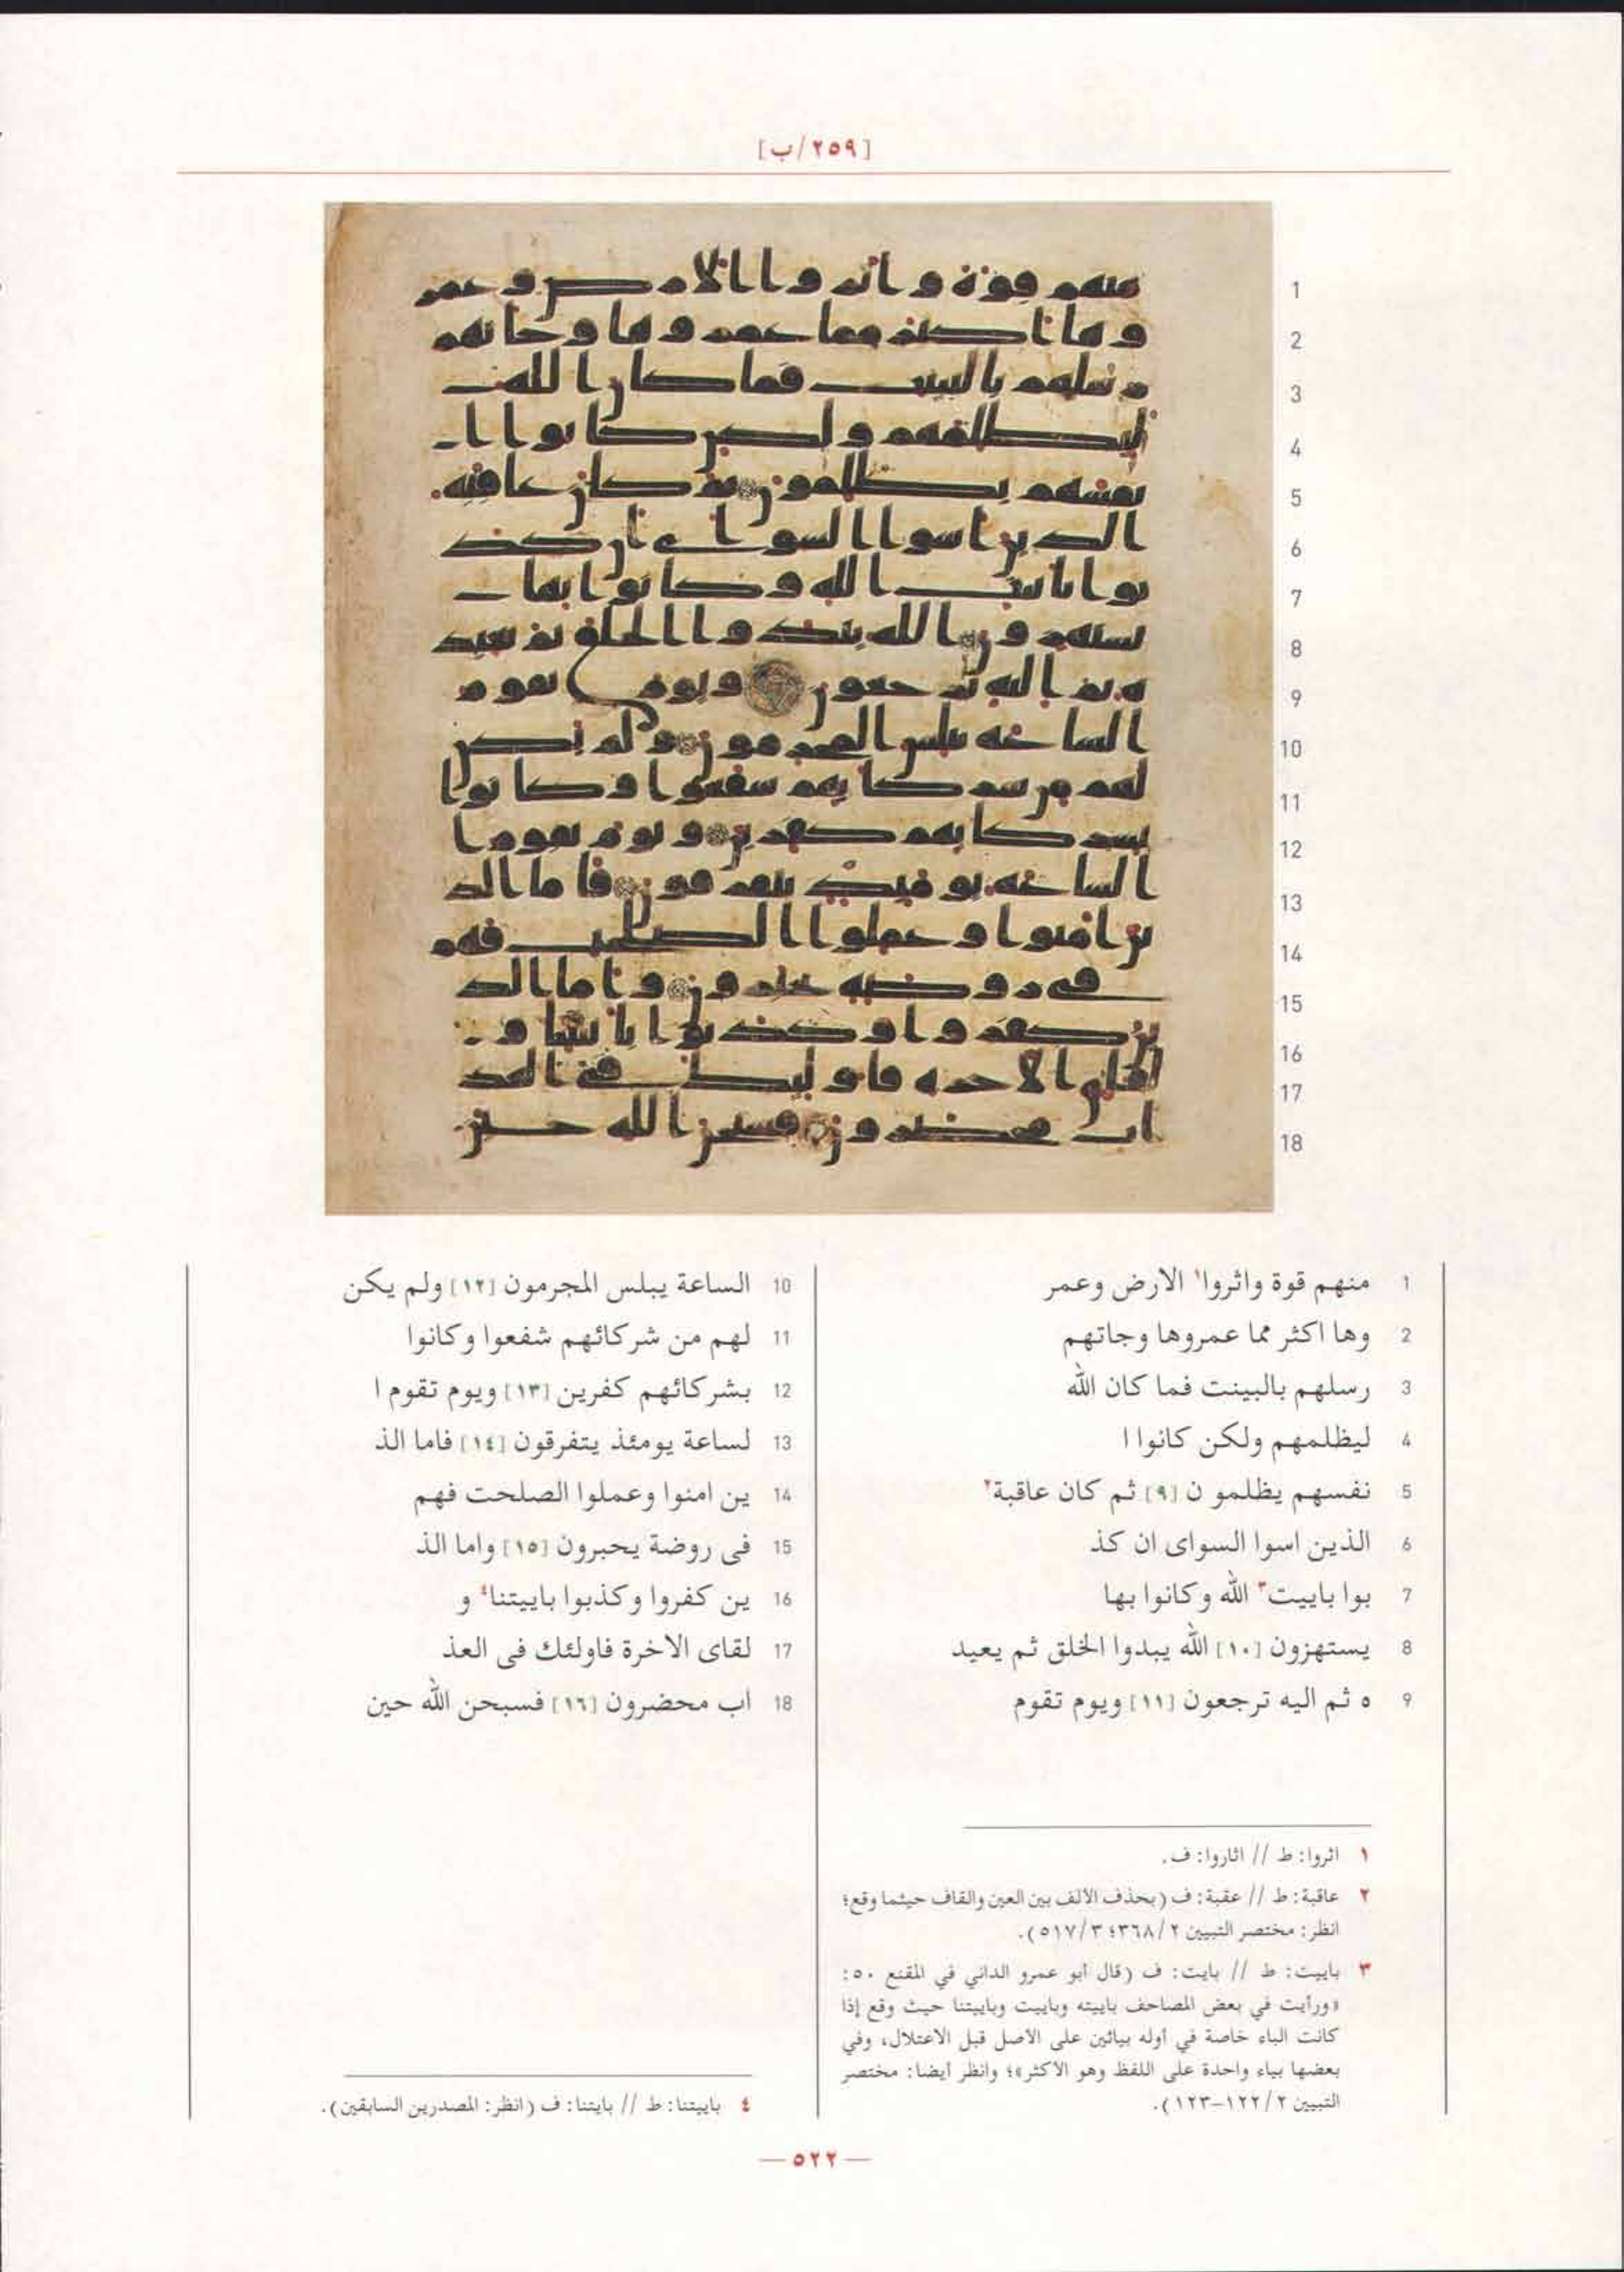 [٢٥٩/ب]
1 منهم قوة واثروا١ الارض وعمر
2 وها اكثر مما عمروها وجاتهم
3 رسلهم بالبينت فما كان الله
4 ليظلمهم ولكن كانوا ا
5 نفسهم يظلمو ن [٩] ثم كان عاقبة٢
6 الذين اسوا السواى ان كذ
7 بوا باييت٣ الله وكانوا بها
8 يستهزون [١٠] الله يبدوا الخلق ثم يعيد
9 ه ثم اليه ترجعون [١١] ويوم تقوم
10 الساعة يبلس المجرمون [١٢] ولم يكن
11 لهم من شركائهم شفعوا وكانوا
12 بشركائهم كفرين [١٣] ويوم تقوم ا
13 لساعة يومئذ يتفرقون [١٤] فاما الذ
14 ين امنوا وعملوا الصلحت فهم
15 فى روضة يحبرون [١٥] واما الذ
16 ين كفروا وكذبوا باييتنا٤ و
17 لقاى الاخرة فاولئك فى العذ
18 اب محضرون [١٦] فسبحن الله حين
١ اثروا: ط // اثاروا: ف.
٢ عاقبة: ط // عقبة: ف (بحذف الألف بين العين والقاف حيثما وقع؛
انظر: مختصر التبيين ٢/٣٦٨؛ ٣/٥١٧).
٣ باييت: ط // بايت: ف (قال أبو عمرو الداني في المقنع ٥٠:
«ورأيت في بعض المصاحف باييته وباييت وباييتنا حيث وقع إذا
كانت الباء خاصة في أوله بيائين على الأصل قبل الاعتلال، وفي
بعضها بياء واحدة على اللفظ وهو الأكثر»؛ وانظر أيضا: مختصر
التبيين ٢/١٢٢-١٢٣).
٤ باييتنا: ط // بايتنا: ف (انظر: المصدرين السابقين).
— ٥٢٢ —